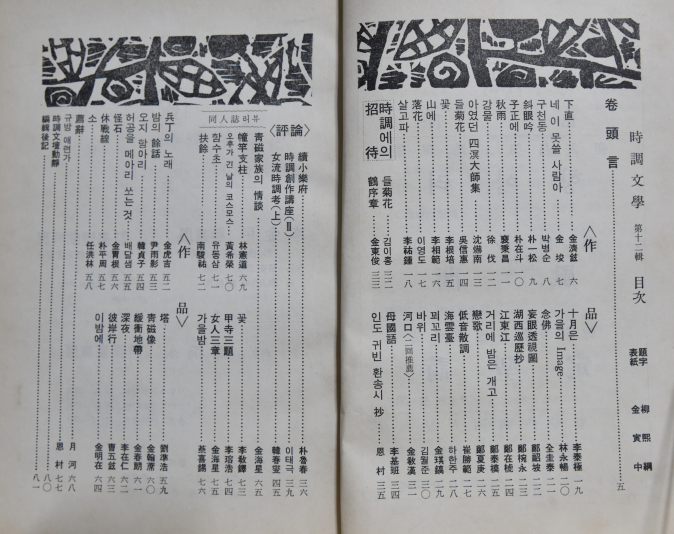 時調文學 第十二輯 目次
題字 柳熙綱
表紙 金寅中
卷頭言 五
〈作品〉
下直 金濟鉉 六
네 이 못쓸 사람아 金埈 七
구천동 박병순 八
斜眼吟 朴一松 九
子正에 朴在斗 一〇
秋雨 裵秉昌 一一
강물 徐伐 一二
아였던 四溟大師集 沈儀南 一三
들菊花 吳信惠 一四
꽃 李根培 一五
山에 李相範 一六
落花 이영도 一七
살고파 李祐鍾 一八
十月은 李泰極 一九
가을의 Image 林永暢 二〇
念佛 全圭泰 二一
妄眼透視圖 鄭韶坡 二二
湖西巡歷抄 鄭椀永 二三
江東江 鄭在虎 二四
거리에 밤은 개고 鄭泰模 二五
戀歌 鄭夏庚 二六
低音散調 崔勝範 二七
海雲臺 하한주 二八
꾀꼬리 金琪鎬 二九
바위 김월준 三〇
河口〈二回推薦〉 金敎漢 三一
時調에의 招待
들菊花 김이홍 三二
鶴序章 金東俊 三三
母國語 李基班 三四
인도 귀빈 환송시 抄 恩村 三五
〈評論〉
續小樂府 朴魯春 三六
時調創作講座(Ⅱ) 이태극 三九
女流時調考(上) 韓春燮 四五
青磁家族의 情談 金海星 六五
同人誌러뷰
幢竿支柱 林憲道 六九
오후가 긴 날의 코스모스 黃希榮 七〇
함수초 유동삼 七一
扶餘 南駿祐 七二
꽃 李敎鐸 七三
甲寺三題 李瑢浩 七四
女人三章 金海星 七五
가을밤 蔡喜錫 七六
〈作品〉
兵丁의 노래 金虎吉 五二
밤의 餘話 尹雨影 五三
오지 항아리 韓貞子 五四
허공을 메아리 쏘는 것 배달샘 五五
怪石 金寶根 六六
休戰線 朴平周 五七
소 任洪林 五八
塔 劉準浩 五九
靑磁像 金翰漂 六〇
緩衝地帶 金春朗 六一
深夜 李在仁 六二
彼岸行 曹五鉉 六三
이밤에 金明在 六四
薦辭
규방 애련가 月河 六八
時調文壇動靜 恩村 七七
編輯後記 八〇
八一